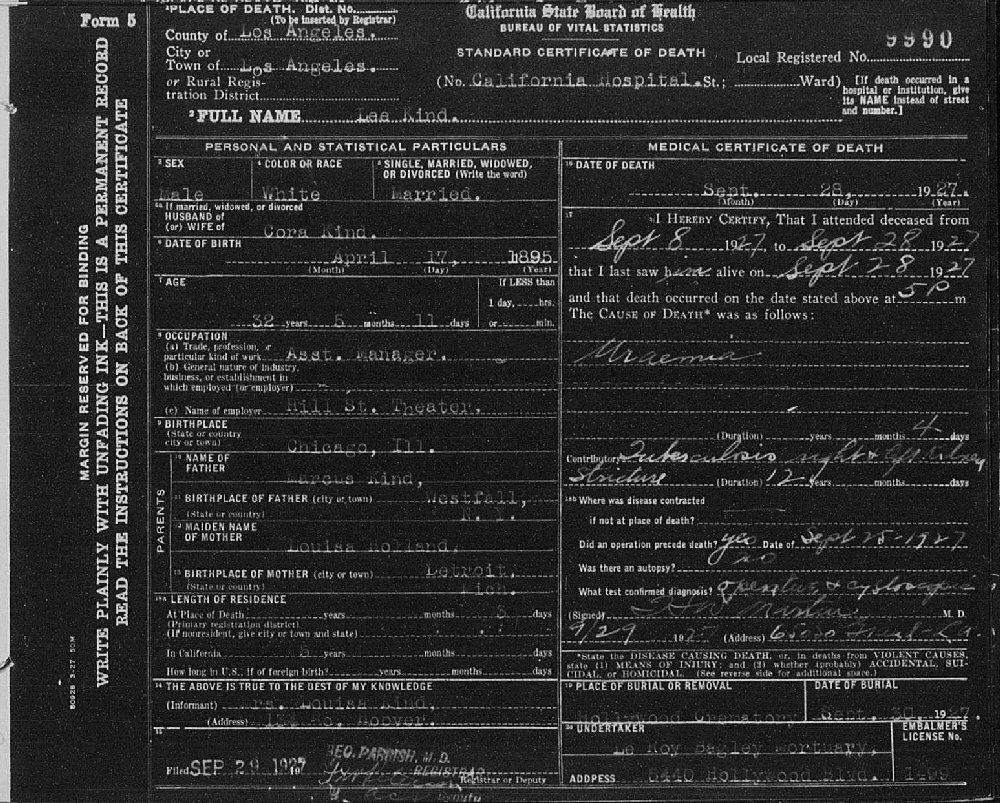 Form 5
MARGIN RESERVED FOR BINDING
WRITE PLAINLY WITH UNFADING INK—THIS IS A PERMANENT RECORD
READ THE INSTRUCTIONS ON BACK OF THIS CERTIFICATE
80928 3-27 50M
¹PLACE OF DEATH. Dist. No.
(To be inserted by Registrar)
County of Los Angeles.
City or
Town of Los Angeles.
or Rural Regis-
tration District
California State Board of Health
BUREAU OF VITAL STATISTICS
STANDARD CERTIFICATE OF DEATH
Local Registered No. 9990
(No. California Hospital. St.; Ward)
[If death occurred in a
hospital or institution, give
its NAME instead of street
and number.]
²FULL NAME Lee Kind.
PERSONAL AND STATISTICAL PARTICULARS
³ SEX
Male
⁴ COLOR OR RACE
White
⁵ SINGLE, MARRIED, WIDOWED,
OR DIVORCED (Write the word)
Married.
5a If married, widowed, or divorced
HUSBAND of
(or) WIFE of Cora Kind.
⁶ DATE OF BIRTH
April 17, 1895
(Month) (Day) (Year)
⁷ AGE
If LESS than
1 day, hrs.
or min.
32 years 5 months 11 days
⁸ OCCUPATION
(a) Trade, profession, or
particular kind of work Asst. Manager.
(b) General nature of industry,
business, or establishment in
which employed (or employer)
(c) Name of employer Hill St. Theater.
⁹ BIRTHPLACE
(State or country
city or town) Chicago, Ill.
PARENTS
¹⁰ NAME OF
FATHER
Marcus Kind,
¹¹ BIRTHPLACE OF FATHER (city or town) Westfall,
(State or country) N. Y.
¹² MAIDEN NAME
OF MOTHER
Louisa Holland,
¹³ BIRTHPLACE OF MOTHER (city or town) Detroit,
(State or country) Mich.
13a LENGTH OF RESIDENCE
At Place of Death years months 8 days
(Primary registration district)
(If nonresident, give city or town and state)
In California years months days
How long in U.S., if of foreign birth? years months days
¹⁴ THE ABOVE IS TRUE TO THE BEST OF MY KNOWLEDGE
(Informant) Mrs. Louisa Kind,
(Address) So. Hoover.
15
Filed SEP 29 1927
GEO. PARRISH, M.D.
REGISTRAR
Registrar or Deputy
Deputy
MEDICAL CERTIFICATE OF DEATH
16 DATE OF DEATH
Sept. 28, 1927.
(Month) (Day) (Year)
17 I HEREBY CERTIFY, That I attended deceased from
Sept 8 1927 to Sept 28 1927
that I last saw him alive on Sept 28 1927
and that death occurred on the date stated above at 5 P m
The CAUSE OF DEATH* was as follows:
Uraemia
(Duration) years months 4 days
Contributory Tuberculosis right & left kidney
Stricture (Duration) 12 years months days
18b Where was disease contracted
if not at place of death?
Did an operation precede death? yes Date of Sept 25-1927
Was there an autopsy? no
What test confirmed diagnosis?
(Signed) M. D.
9/29 1927 (Address)
*State the DISEASE CAUSING DEATH, or, in deaths from VIOLENT CAUSES,
state (1) MEANS OF INJURY; and (2) whether (probably) ACCIDENTAL, SUI-
CIDAL, or HOMICIDAL. (See reverse side for additional space.)
19 PLACE OF BURIAL OR REMOVAL
Hollywood Crematory
DATE OF BURIAL
Sept. 30, 1927.
20 UNDERTAKER
Le Roy Bagley Mortuary,
EMBALMER'S
LICENSE No.
ADDRESS 6440 Hollywood Blvd.